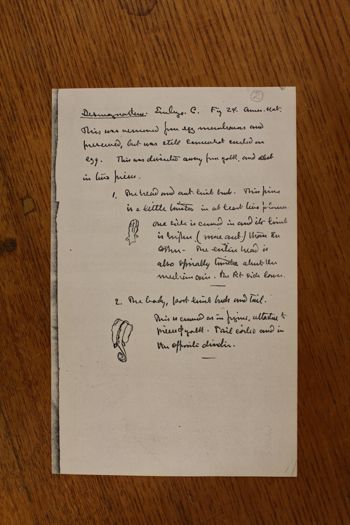 Desmognathus. Embryo C. Fig 24. Amer. Nat.
This was removed from egg membranes and
preserved, but was still somewhat curled on
egg. This was dissected away from yolk, and is
in two pieces.
1. The head and ant limb buds. This piece
is a little twisted in at least two planes.
one side is curved in and its limb
is higher (more ant) than the
other - The entire head is
also spirally twisted about the
median axis. The Rt side lower.
2. The body, post limb buds and tail.
This is curved as in figure, attached to
piece of yolk. Tail coiled and in
the opposite direction.